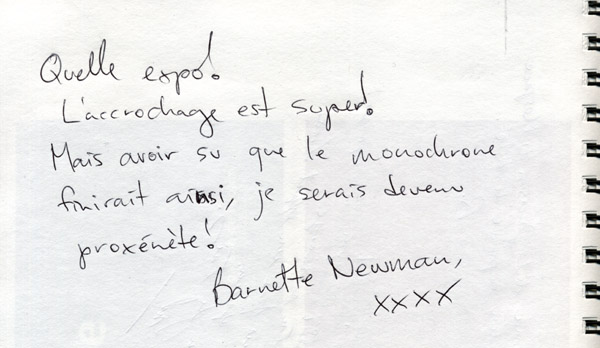 Quelle expo!
L'accrochage est super!
Mais avoir su que le monochrome
finirait ainsi, je serais devenu
proxénète!
Barnette Newman,
xxxx